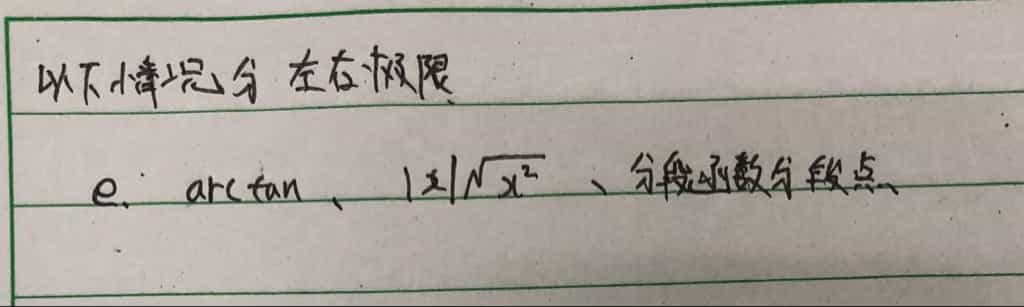 以下情况分 左右极限
e. arctan、 |x|√x² 、分段函数分段点、